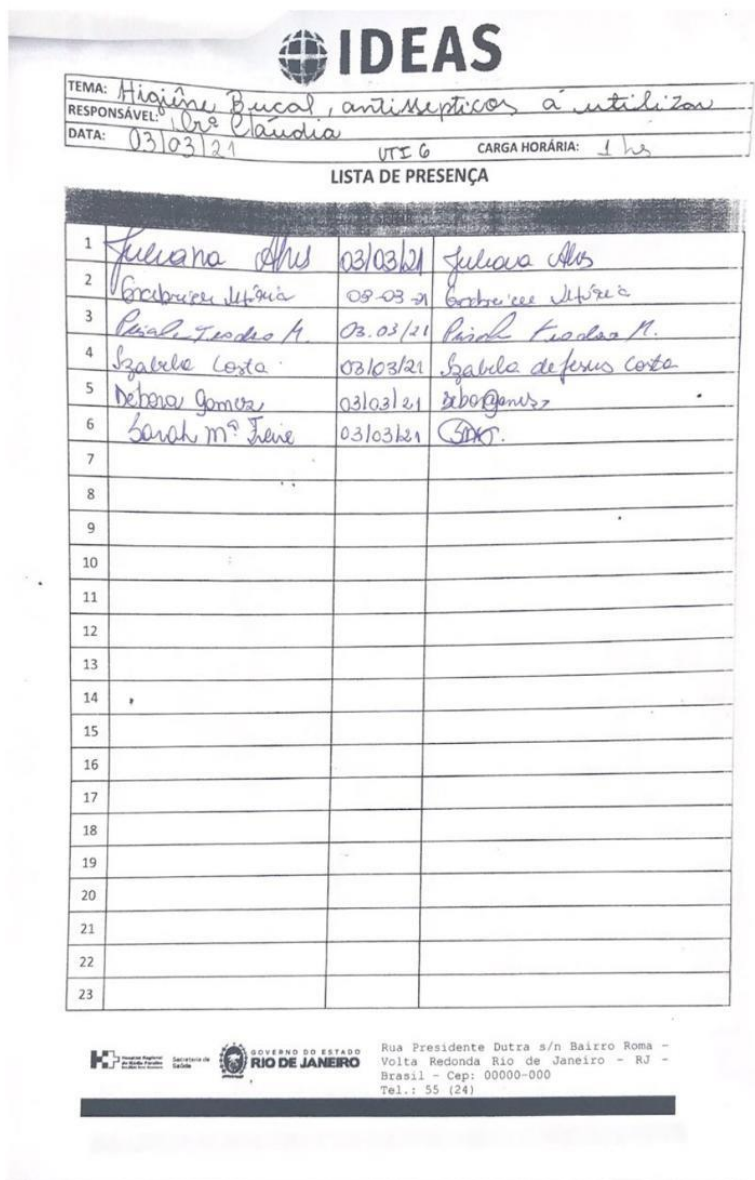 IDEAS
TEMA: Higiêne Bucal, antissepticos á utilizar
RESPONSÁVEL: Drª Cláudia
DATA: 03/03/21 UTI 6 CARGA HORÁRIA: 1 hs
LISTA DE PRESENÇA
1 Juliana Alves 03/03/21 Juliana Alves
2 03-03-21
3 03.03/21
4 Izabela Costa 03/03/21 Izabela de Jesus Costa
5 Debora Gomes 03/03/21 Debora Gomes
6 Sarah Mª Freire 03/03/21
7
8
9
10
11
12
13
14
15
16
17
18
19
20
21
22
23
Hospital Regional
Secretaria de
Saúde
GOVERNO DO ESTADO
RIO DE JANEIRO
Rua Presidente Dutra s/n Bairro Roma -
Volta Redonda Rio de Janeiro - RJ -
Brasil - Cep: 00000-000
Tel.: 55 (24)